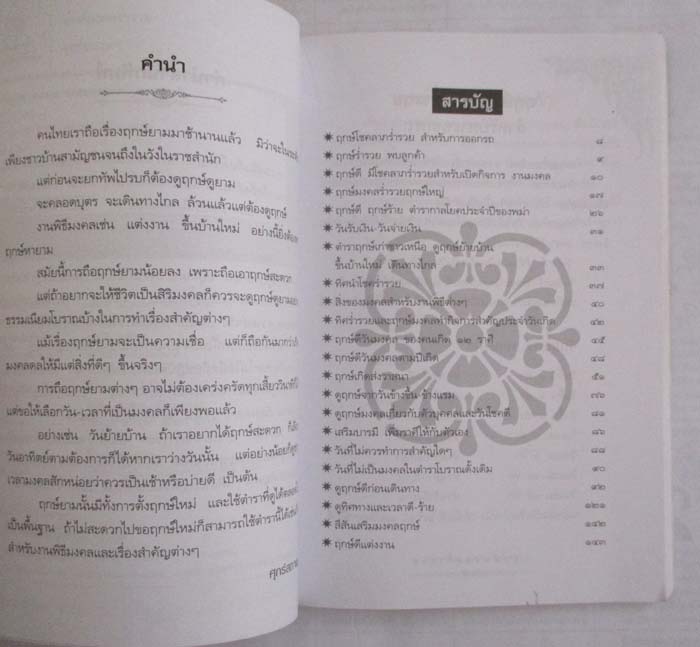 คำนำ
คนไทยเราถือเรื่องฤกษ์ยามมาช้านานแล้ว มิว่าจะใน
เพียงชาวบ้านสามัญชนจนถึงในวังในราชสำนัก
แต่ก่อนจะยกทัพไปรบก็ต้องดูฤกษ์ดูยาม
จะคลอดบุตร จะเดินทางไกล ล้วนแล้วแต่ต้องดูฤกษ์
งานพิธีมงคลเช่น แต่งงาน ขึ้นบ้านใหม่ อย่างนี้ยิ่งต้อง
ฤกษ์หายาม
สมัยนี้การถือฤกษ์ยามน้อยลง เพราะถือเอาฤกษ์สะดวก
แต่ถ้าอยากจะให้ชีวิตเป็นสิริมงคลก็ควรจะดูฤกษ์ดูยาม
ธรรมเนียมโบราณบ้างในการทำเรื่องสำคัญต่างๆ
แม้เรื่องฤกษ์ยามจะเป็นความเชื่อ แต่ก็ถือกันมากว่า
มงคลดลให้มีแต่สิ่งที่ดีๆ ขึ้นจริงๆ
การถือฤกษ์ยามต่างๆ อาจไม่ต้องเคร่งครัดทุกเสี้ยววินาที
แต่ขอให้เลือกวัน-เวลาที่เป็นมงคลก็เพียงพอแล้ว
อย่างเช่น วันย้ายบ้าน ถ้าเราอยากได้ฤกษ์สะดวก ก็
วันอาทิตย์ตามต้องการก็ได้หากเราว่างวันนั้น แต่อย่างน้อยก็
เวลามงคลสักหน่อยว่าควรเป็นเช้าหรือบ่ายดี เป็นต้น
ฤกษ์ยามนั้นมีทั้งการตั้งฤกษ์ใหม่ และใช้ตำราที่ดูได้
เป็นพื้นฐาน ถ้าไม่สะดวกไปขอฤกษ์ใหม่ก็สามารถใช้ตำรานี้ได้
สำหรับงานพิธีมงคลและเรื่องสำคัญต่างๆ
สารบัญ
ฤกษ์โชคลาภร่ำรวย สำหรับการออกรถ ๘
ฤกษ์ร่ำรวย พบลูกค้า ๙
ฤกษ์ดี มีโชคลาภร่ำรวยสำหรับเปิดกิจการ งานมงคล ๑๐
ฤกษ์มงคลร่ำรวยฤกษ์ใหญ่ ๑๗
ฤกษ์ดี ฤกษ์ร้าย ตำรากาลโยคประจำปีของพม่า ๒๖
วันรับเงิน-วันจ่ายเงิน ๓๑
ตำราฤกษ์เก่าชาวเหนือ ดูฤกษ์ย้ายบ้าน
ขึ้นบ้านใหม่ เดินทางไกล ๓๓
ทิศนำโชคร่ำรวย ๓๗
สิ่งของมงคลสำหรับงานพิธีต่างๆ ๔๐
ทิศร่ำรวยและฤกษ์มงคลทำกิจการสำคัญประจำวันเกิด ๔๒
ฤกษ์ดีวันมงคล ของคนเกิด ๑๒ ราศี ๔๕
ฤกษ์ดีวันมงคลตามปีเกิด ๔๘
ฤกษ์เกิดส่งวาสนา ๕๑
ดูฤกษ์จากวันข้างขึ้น-ข้างแรม ๗๖
ดูฤกษ์มงคลเกี่ยวกับตัวบุคคลและวันโชคดี ๘๑
เสริมบารมี เพิ่มราศีให้กับตัวเอง ๘๖
วันที่ไม่ควรทำการสำคัญใดๆ ๘๘
วันที่ไม่เป็นมงคลในตำราโบราณดั้งเดิม ๙๐
ดูฤกษ์ดีก่อนเดินทาง ๙๒
ดูทิศทางและเวลาดี-ร้าย ๑๒๑
สีสันเสริมมงคลฤกษ์ ๑๔๒
ฤกษ์ดีแต่งงาน ๑๔๓